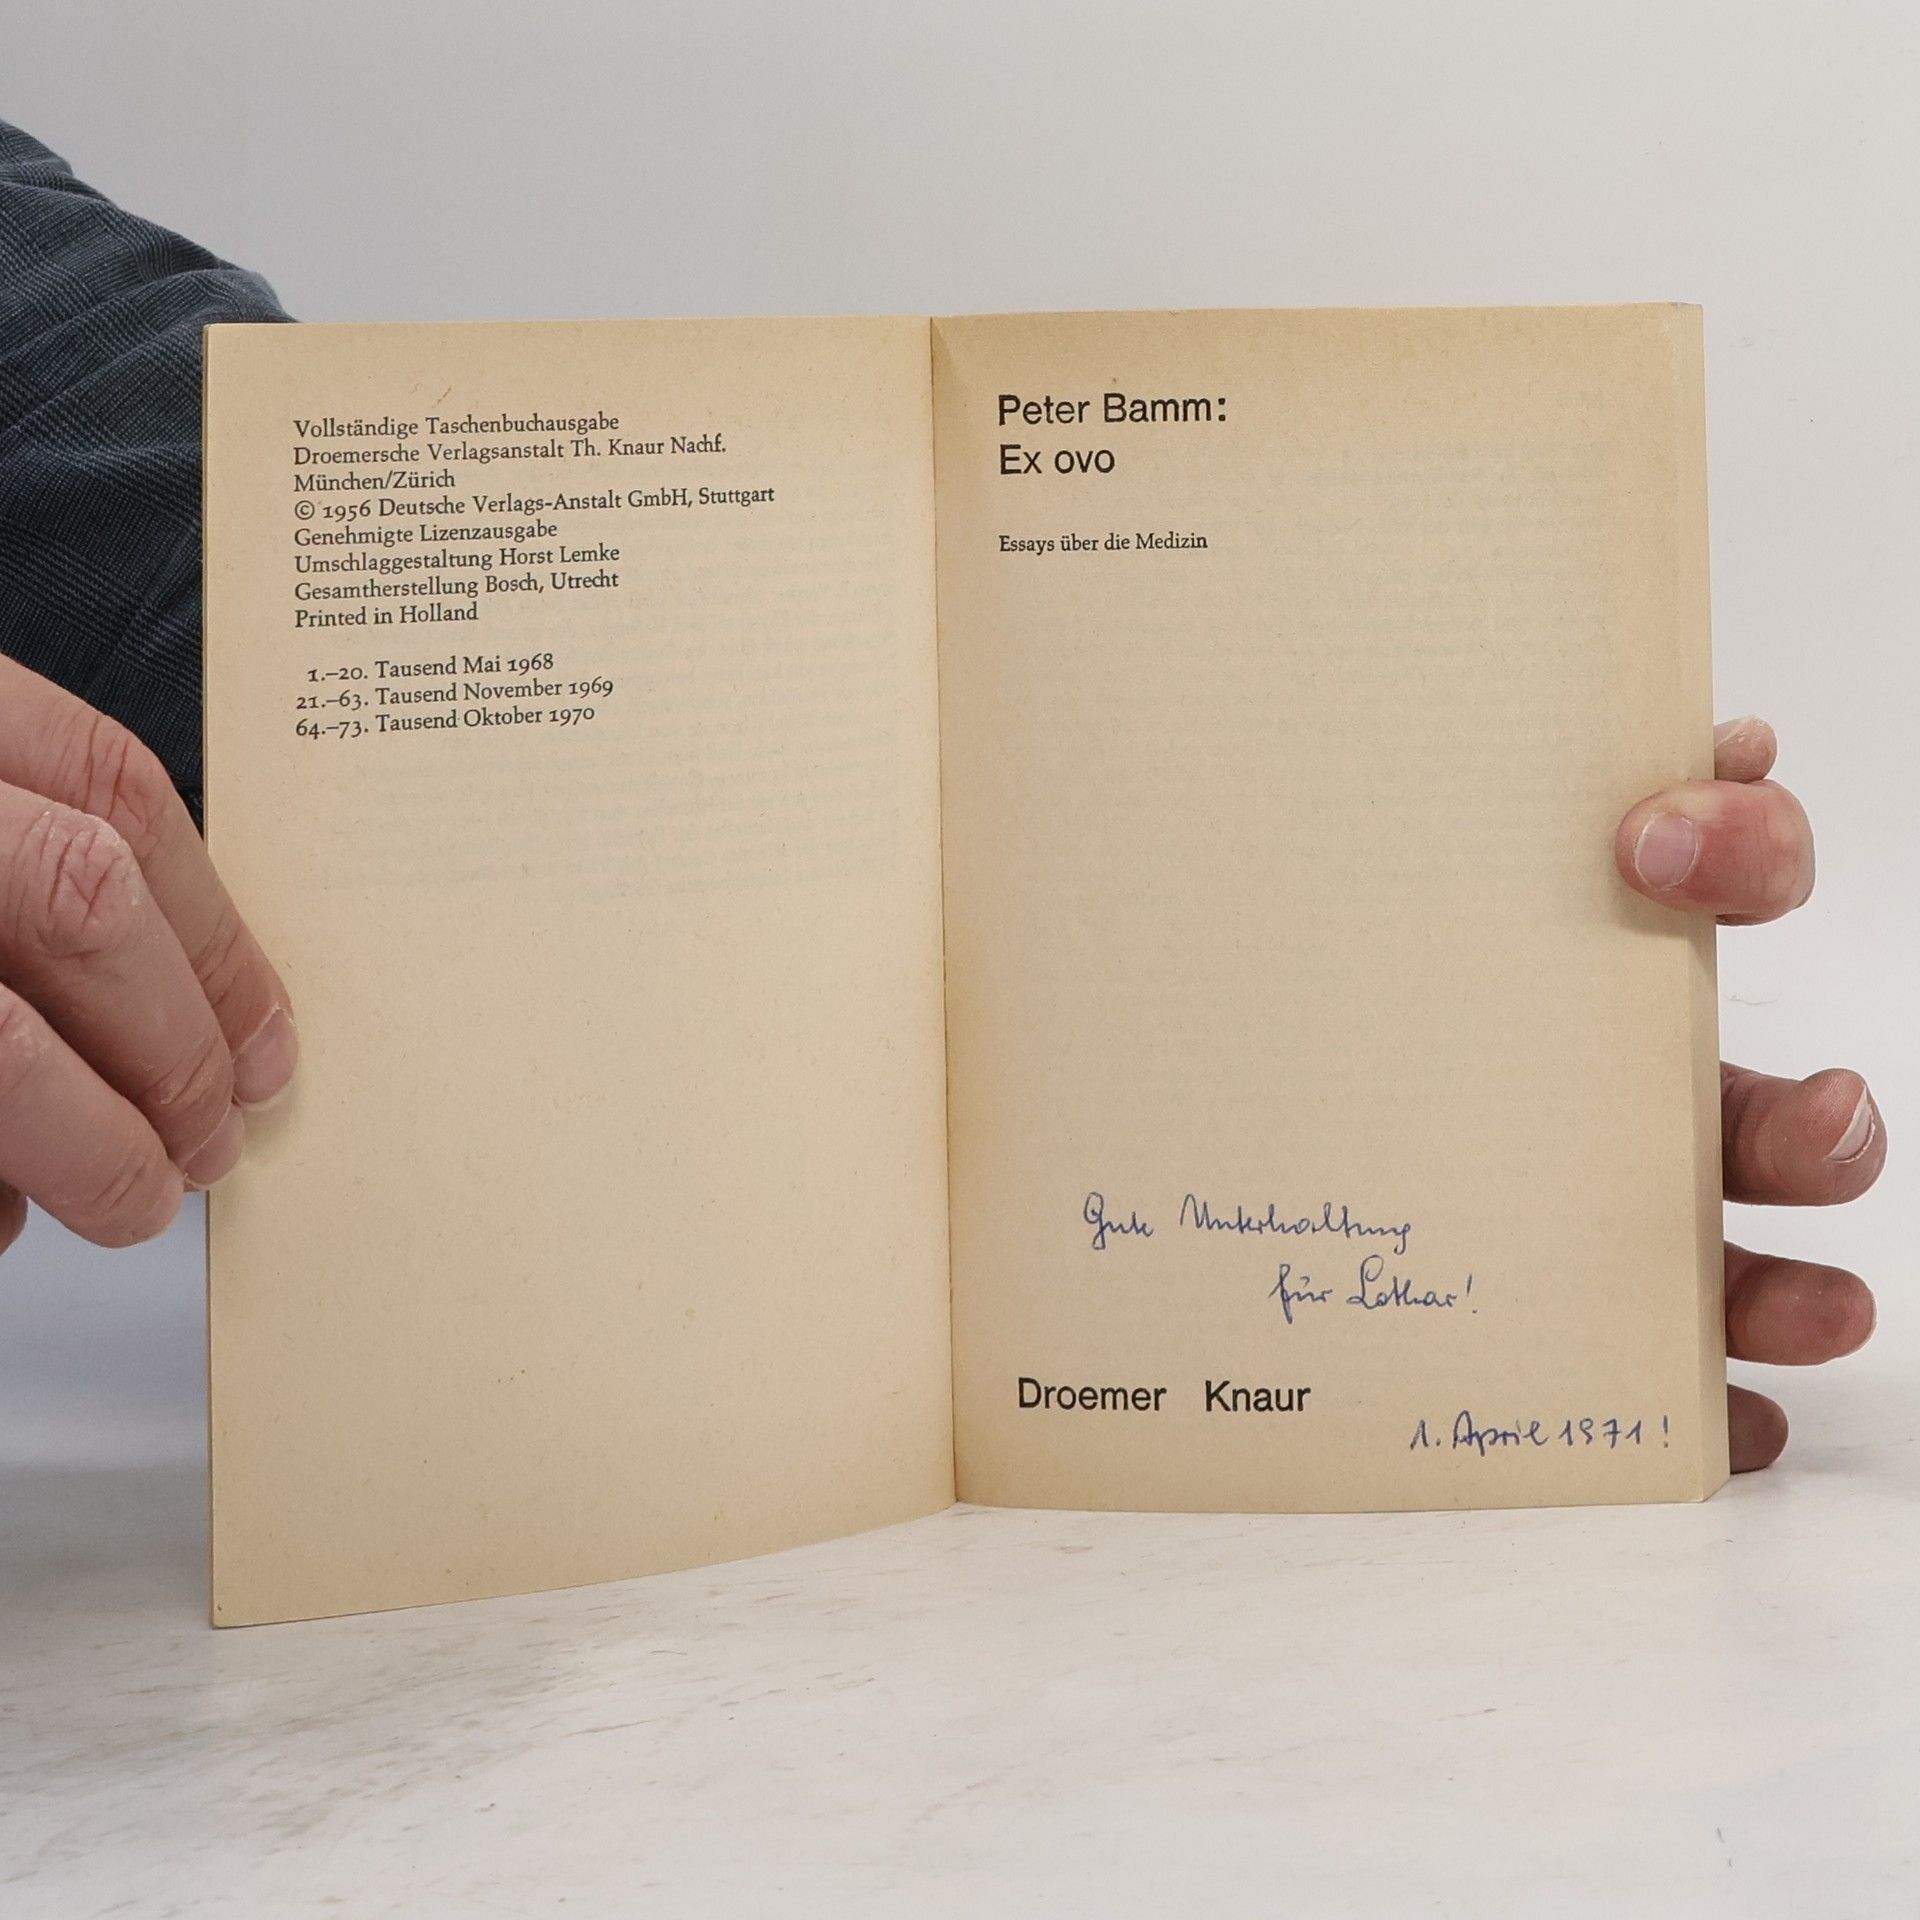 Vollständige Taschenbuchausgabe
Droemersche Verlagsanstalt Th. Knaur Nachf.
München/Zürich
© 1956 Deutsche Verlags-Anstalt GmbH, Stuttgart
Genehmigte Lizenzausgabe
Umschlaggestaltung Horst Lemke
Gesamtherstellung Bosch, Utrecht
Printed in Holland
1.–20. Tausend Mai 1968
21.–63. Tausend November 1969
64.–73. Tausend Oktober 1970
Peter Bamm:
Ex ovo
Essays über die Medizin
Gute Unterhaltung
für Lothar!
Droemer Knaur
1. April 1971!